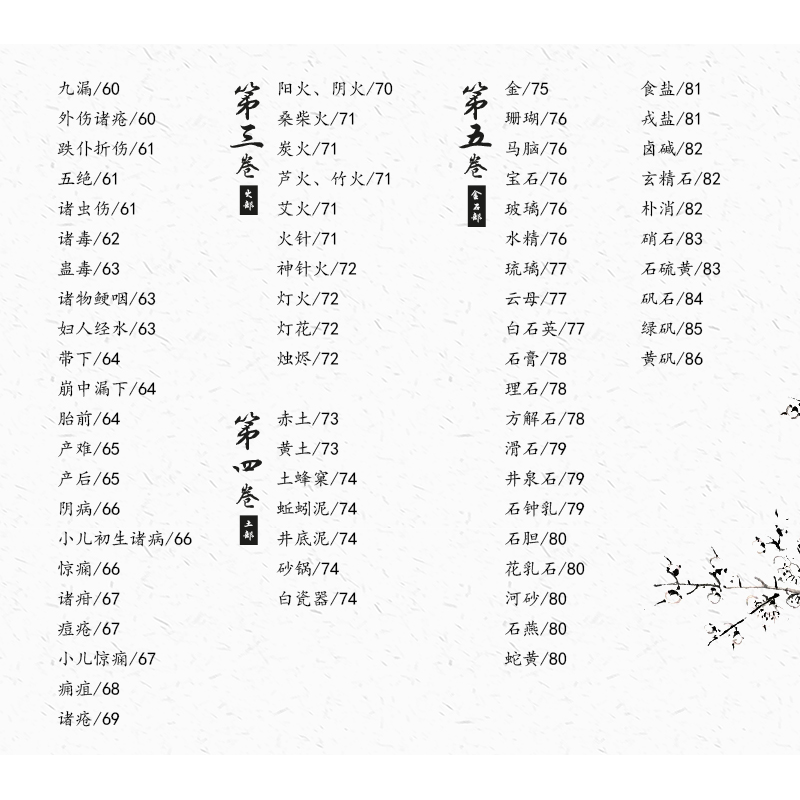 九漏/60
外伤诸疮/60
跌仆折伤/61
五绝/61
诸虫伤/61
诸毒/62
蛊毒/63
诸物鲠咽/63
妇人经水/63
带下/64
崩中漏下/64
胎前/64
产难/65
产后/65
阴病/66
小儿初生诸病/66
惊痫/66
诸疳/67
痘疮/67
小儿惊痫/67
痈疽/68
诸疮/69
第三卷
火部
阳火、阴火/70
桑柴火/71
炭火/71
芦火、竹火/71
艾火/71
火针/71
神针火/72
灯火/72
灯花/72
烛烬/72
第四卷
土部
赤土/73
黄土/73
土蜂窠/74
蚯蚓泥/74
井底泥/74
砂锅/74
白瓷器/74
第五卷
金石部
金/75
珊瑚/76
马脑/76
宝石/76
玻璃/76
水精/76
琉璃/77
云母/77
白石英/77
石膏/78
理石/78
方解石/78
滑石/79
井泉石/79
石钟乳/79
石胆/80
花乳石/80
河砂/80
石燕/80
蛇黄/80
食盐/81
戎盐/81
卤碱/82
玄精石/82
朴消/82
硝石/83
石硫黄/83
矾石/84
绿矾/85
黄矾/86